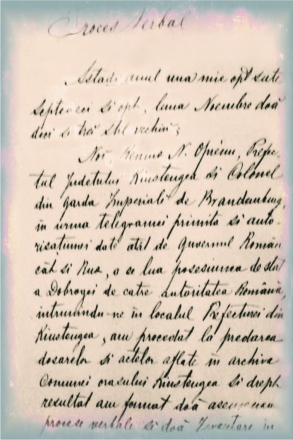 Proces Verbal
Astadi anul una mie opt sute
septe deci si opt, luna Noembre doă
deci si trei stil vechiu;
Noi, Remus N. Opreanu, Prefec
tul Judetului Kiustengea si Colonel
din garda Imperială de Brandenburg,
in urma telegramei primită si auto
risatiunei date atât de Guvernul Român
cât si Rus, a se lua posesiunea de stat
a Dobrogei de catre autoritatea Romană,
intrunindu-ne in localul Prefecturei din
Kiustengea, am procedat la predarea
dosarelor si actelor aflate in archiva
Comunei orasului Kiustengea si drept
resultat am format doă asemenea
procese verbale si doă Inventare in